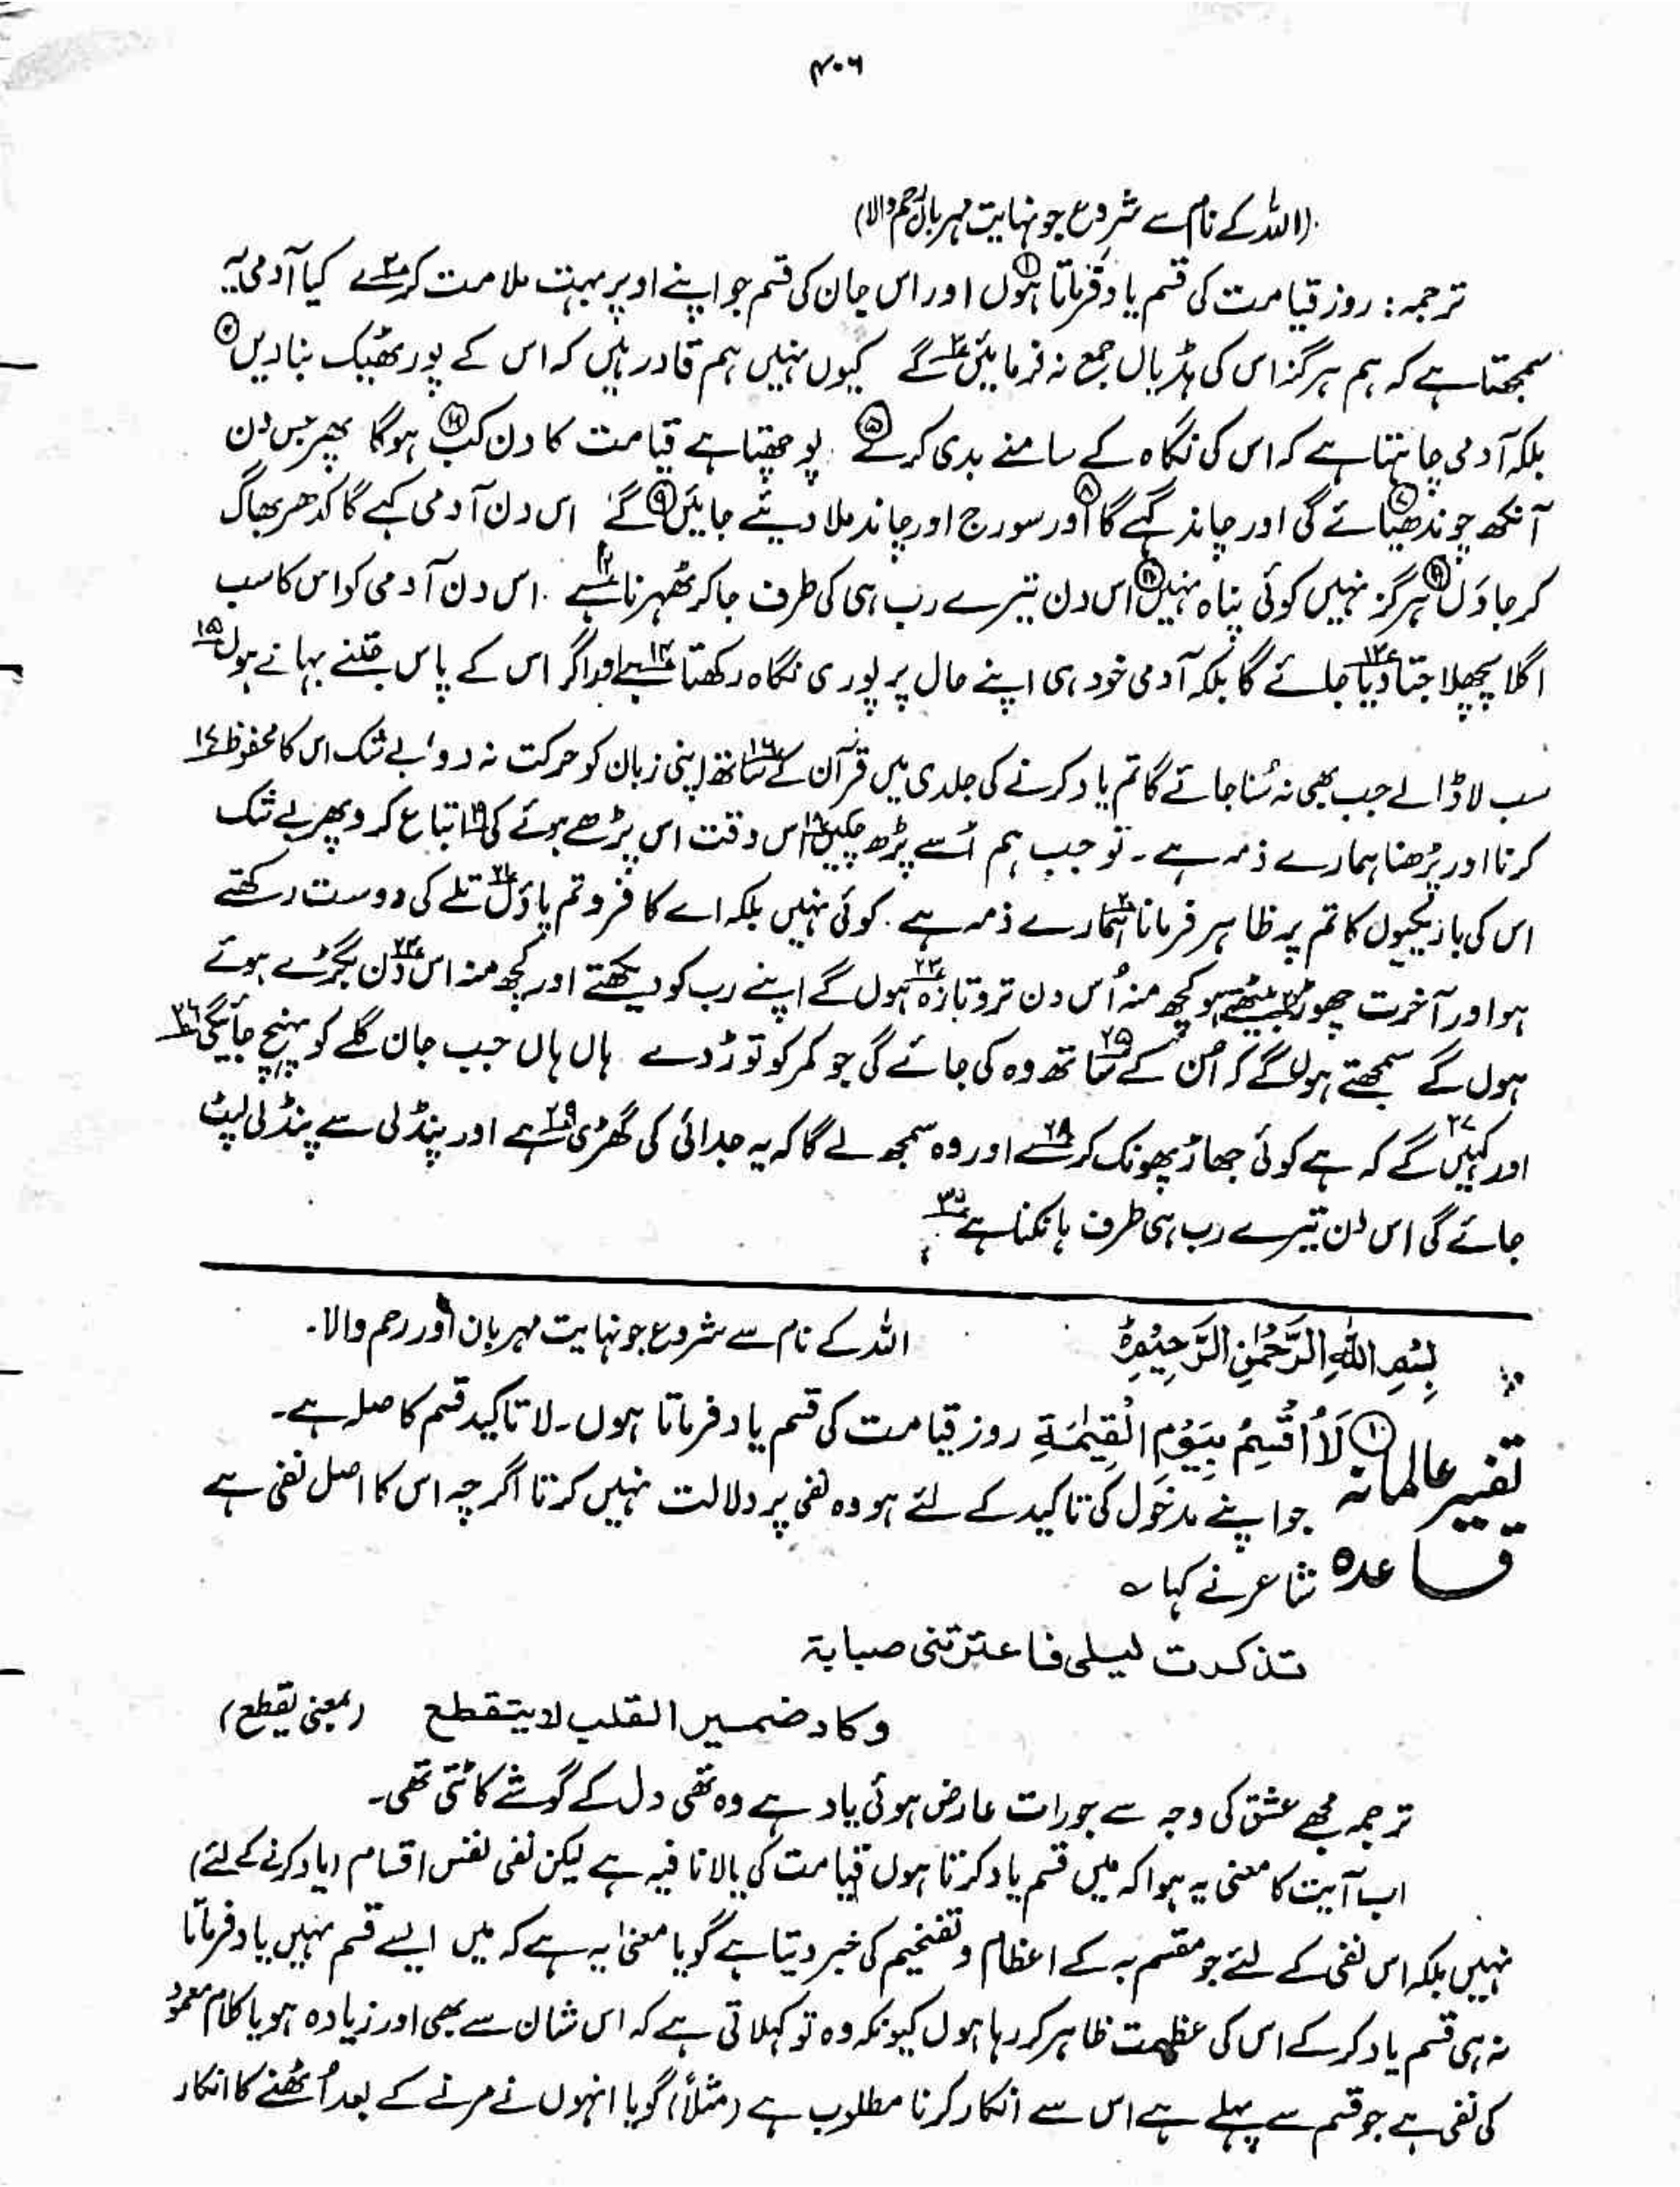 ۴۰۶
(اللہ کے نام سے شروع جو نہایت مہربان رحم والا)
ترجمہ: روز قیامت کی قسم یاد فرماتا ہوں ① اور اس جان کی قسم جو اپنے اوپر بہت ملامت کرے ۲ کیا آدمی یہ
سمجھتا ہے کہ ہم ہرگز اس کی ہڈیاں جمع نہ فرمائیں گے ۳ کیوں نہیں ہم قادر ہیں کہ اس کے پور ٹھیک بنا دیں ④
بلکہ آدمی چاہتا ہے کہ اس کی نگاہ کے سامنے بدی کرے ⑤ پوچھتا ہے قیامت کا دن کب ہوگا ⑥ پھر جس دن
آنکھ چوندھیائے گی ⑦ اور چاند گہے گا ⑧ اور سورج اور چاند ملا دیئے جائیں گے ⑨ اس دن آدمی کہے گا کدھر بھاگ
کر جاؤں ⑩ ہرگز نہیں کوئی پناہ نہیں ⑪ اس دن تیرے رب ہی کی طرف جا کر ٹھہرنا ہے ۱۲ اس دن آدمی کو اس کا سب
اگلا پچھلا جتا دیا جائے گا ۱۳ بلکہ آدمی خود ہی اپنے حال پر پوری نگاہ رکھتا ہے ۱۴ اور اگر اس کے پاس جتنے بہانے ہوں ۱۵
سب لا ڈالے جب بھی نہ سُنا جائے گا تم یاد کرنے کی جلدی میں قرآن کے ساتھ ۱۶ اپنی زبان کو حرکت نہ دو بے شک اس کا محفوظ ۱۷
کرنا اور پڑھنا ہمارے ذمہ ہے۔ تو جب ہم اُسے پڑھ چکیں ۱۸ اس وقت اس پڑھے ہوئے کی ۱۹ اتباع کرو پھر بے شک
اس کی باریکیوں کا تم پر ظاہر فرمانا ہمارے ذمہ ہے۔ کوئی نہیں بلکہ اے کافرو تم پاؤں ۲۰ تلے کی دوست رکھتے
ہو اور آخرت چھوڑ بیٹھے ہو ۲۱ کچھ منہ اُس دن تروتازہ ۲۲ ہوں گے اپنے رب کو دیکھتے اور کچھ منہ اس دن ۲۴ بگڑے ہوئے
ہوں گے سمجھتے ہوں گے کہ اُن کے ساتھ ۲۵ وہ کی جائے گی جو کمر کو توڑ دے ہاں ہاں جب جان گلے کو پہنچ جائیگی ۲۶
اور کہیں گے ۲۷ کہ ہے کوئی جھاڑ پھونک کرے ۲۸ اور وہ سمجھ لے گا کہ یہ جدائی کی گھڑی ہے ۲۹ اور پنڈلی سے پنڈلی لپٹ
جائے گی اس دن تیرے رب ہی طرف ہانکنا ہے ۳۰
بِسْمِ اللّٰہِ الرَّحْمٰنِ الرَّحِیْمِ اللہ کے نام سے شروع جو نہایت مہربان اور رحم والا۔
تفسیر عالمانہ ① لَاۤ اُقْسِمُ بِیَوْمِ الْقِیٰمَۃِ روز قیامت کی قسم یاد فرماتا ہوں۔ لا تاکید قسم کا صلہ ہے۔
قاعدہ جو اپنے مدخول کی تاکید کے لئے ہو وہ نفی پر دلالت نہیں کرتا اگرچہ اس کا اصل نفی ہے
شاعر نے کہا ؎
تذکرت لیلی فاعترتنی صبابۃ
وکاد ضمیر القلب لا یتقطع (بمعنی یقطع)
ترجمہ مجھے عشق کی وجہ سے جو رات عارض ہوئی یاد ہے وہ تھی دل کے گوشے کاٹتی تھی۔
اب آیت کا معنی یہ ہوا کہ میں قسم یاد کرتا ہوں قیامت کی یا لا نافیہ ہے لیکن نفی نفس اقسام (یاد کرنے کے لئے)
نہیں بلکہ اس نفی کے لئے جو مقسم بہ کے اعظام و تفخیم کی خبر دیتا ہے گویا معنیٰ یہ ہے کہ میں ایسے قسم نہیں یاد فرماتا
نہ ہی قسم یاد کر کے اس کی عظمت ظاہر کر رہا ہوں کیونکہ وہ تو کہلاتی ہے کہ اس شان سے بھی اور زیادہ ہو یا کلام معہود
کی نفی ہے جو قسم سے پہلے ہے اس سے انکار کرنا مطلوب ہے (مثلاً) گویا انہوں نے مرنے کے بعد اُٹھنے کا انکار